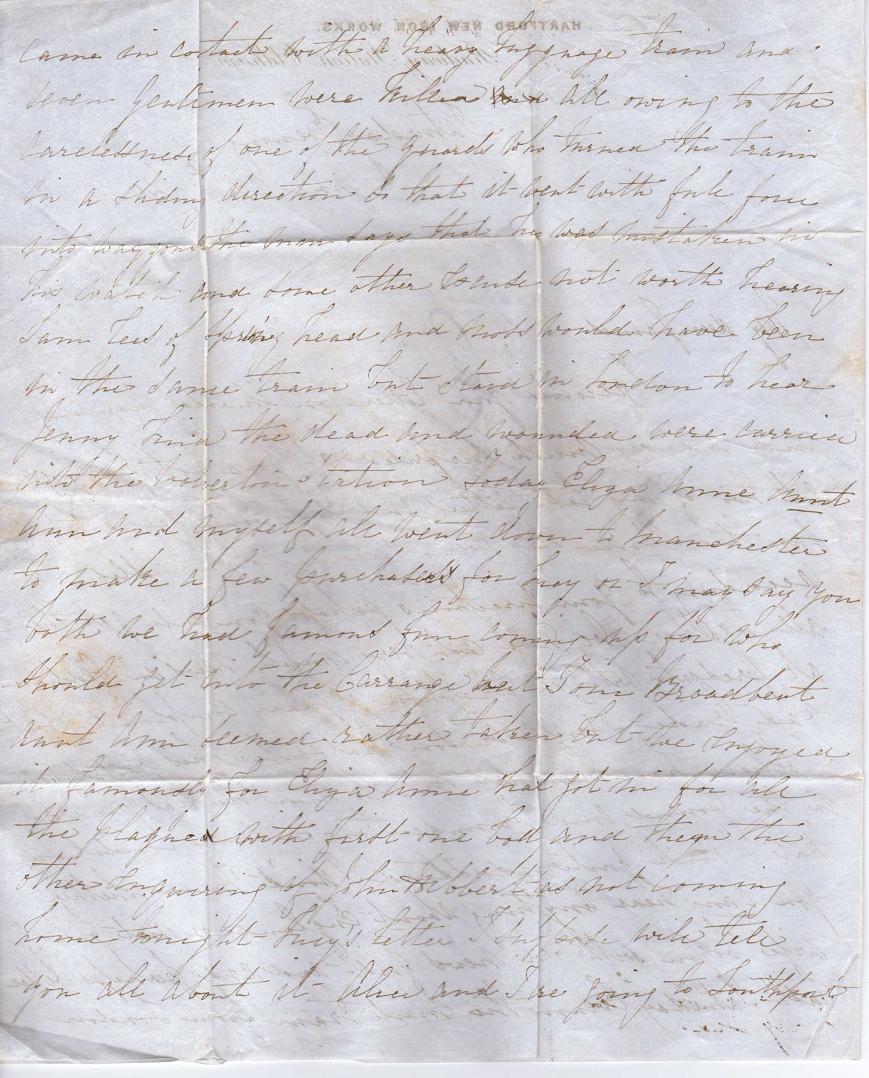 HARTFORD NEW IRON WORKS.
came in contact with a heavy luggage train and
seven gentlemen were killed all owing to the
carelessness of one of the guards who turned the train
in a sliding direction so that it went with full force
into waggons the man says that he was mistaken in
his watch and some other not worth hearing
Sam Lees of Spring head and would have been
in the same train but staid in London to hear
Jenny Lind the dead and wounded were carried
into the station today Eliza Anne Aunt
Ann and myself all went down to Manchester
to make a few purchases for hey or I may say you
both we had famous fun coming up for who
should get into the Carraige but Tom Broadbent
aunt Ann seemed rather taken but we enjoyed
it famously for Eliza Anne had got in for all
the plagued with first one body and then the
other enquiring if John was not coming
home tonight letter I suppose will tell
you all about it Alice and I are going to Southport